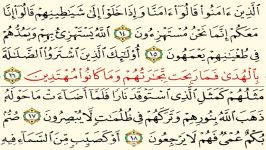 ٱلَّذِينَ ءَامَنُوا۟ قَالُوٓا۟ ءَامَنَّا وَإِذَا خَلَوْا۟ إِلَىٰ شَيَـٰطِينِهِمْ قَالُوٓا۟ إِنَّا
مَعَكُمْ إِنَّمَا نَحْنُ مُسْتَهْزِءُونَ ١٤ ٱللَّهُ يَسْتَهْزِئُ بِهِمْ وَيَمُدُّهُمْ
فِى طُغْيَـٰنِهِمْ يَعْمَهُونَ ١٥ أُو۟لَـٰٓئِكَ ٱلَّذِينَ ٱشْتَرَوُا۟ ٱلضَّلَـٰلَةَ
بِٱلْهُدَىٰ فَمَا رَبِحَت تِّجَـٰرَتُهُمْ وَمَا كَانُوا۟ مُهْتَدِينَ ١٦
مَثَلُهُمْ كَمَثَلِ ٱلَّذِى ٱسْتَوْقَدَ نَارًا فَلَمَّآ أَضَآءَتْ مَا حَوْلَهُۥ
ذَهَبَ ٱللَّهُ بِنُورِهِمْ وَتَرَكَهُمْ فِى ظُلُمَـٰتٍ لَّا يُبْصِرُونَ ١٧
صُمٌّۢ بُكْمٌ عُمْىٌ فَهُمْ لَا يَرْجِعُونَ ١٨ أَوْ كَصَيِّبٍ مِّنَ ٱلسَّمَآءِ فِيهِ